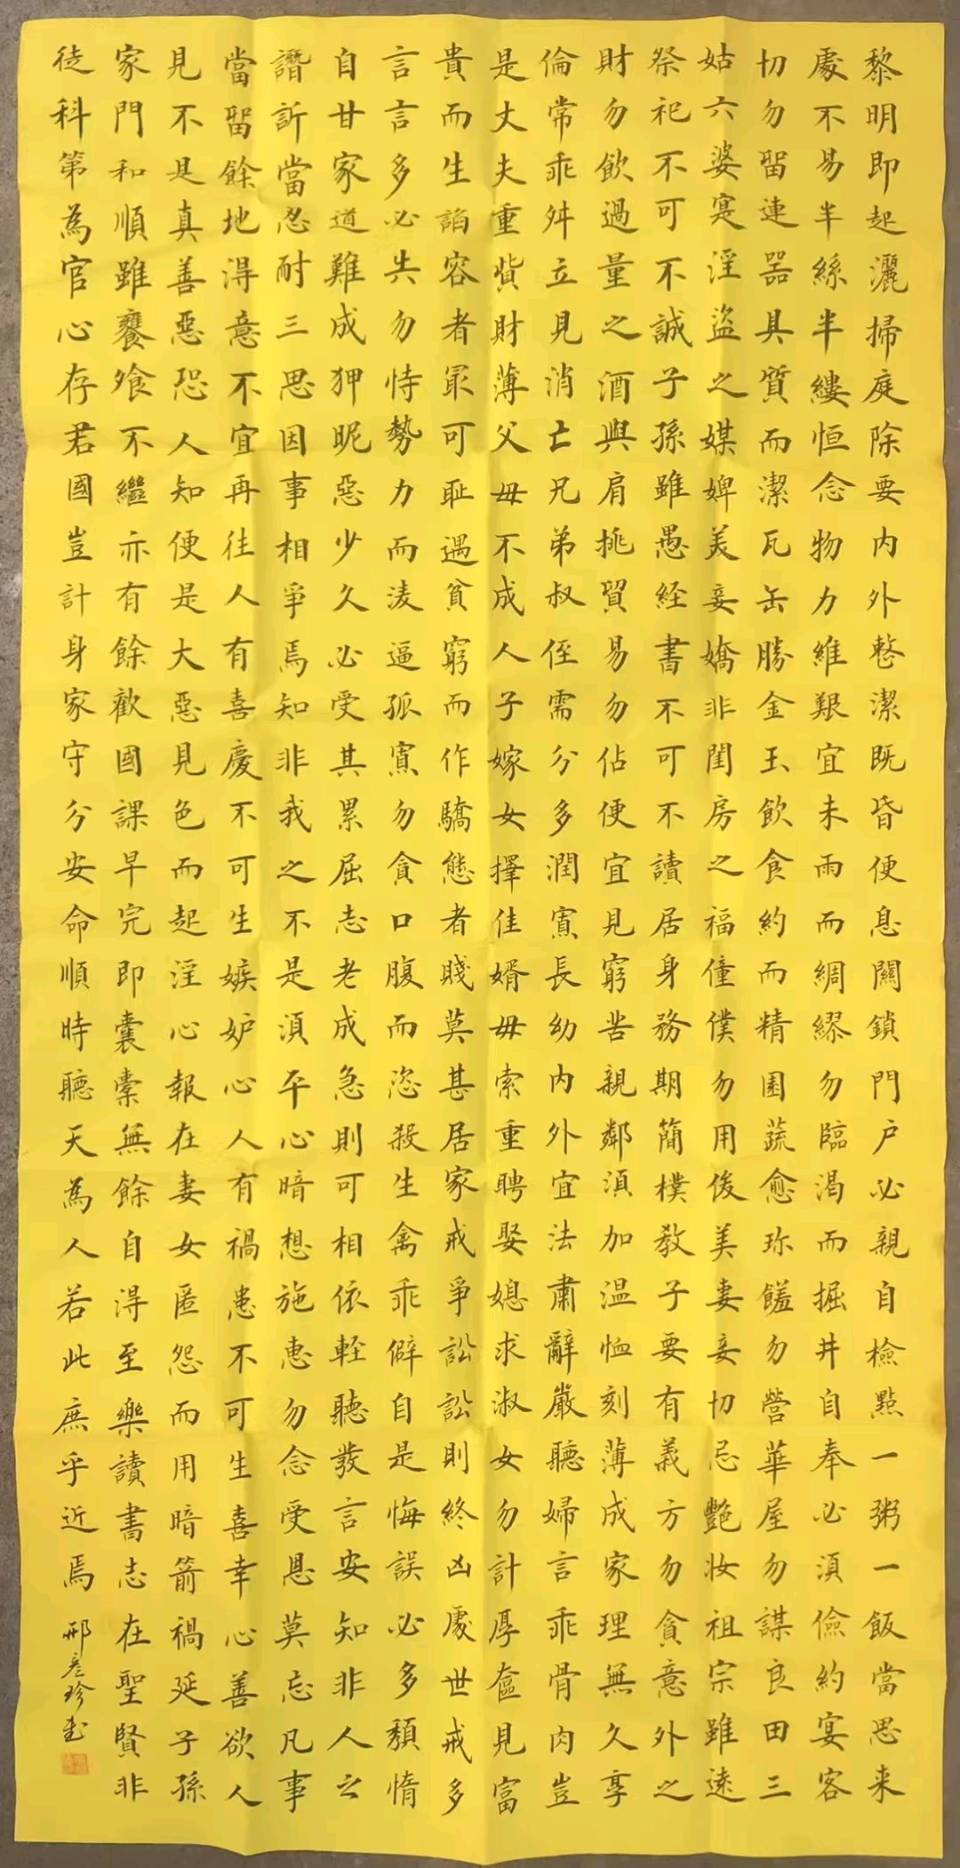 黎明即起灑掃庭除要内外整潔既昏便息關鎖門户必親自檢點一粥一飯當思来
處不易半絲半縷恒念物力維艱宜未雨而綢繆勿臨渴而掘井自奉必須儉約宴客
切勿留連器具質而潔瓦缶勝金玉飲食約而精園蔬愈珎饈勿營華屋勿謀良田三
姑六婆寔淫盗之媒婢美妾嬌非閨房之福僮僕勿用俊美妻妾切忌艷妝祖宗雖遠
祭祀不可不誠子孫雖愚經書不可不讀居身務期簡樸教子要有義方勿貪意外之
財勿飲過量之酒與肩挑貿易勿佔便宜見窮苦親鄰須加温恤刻薄成家理無久享
倫常乖舛立見消亡兄弟叔侄需分多潤寡長幼内外宜法肅辭嚴聽婦言乖骨肉豈
是丈夫重貲財薄父母不成人子嫁女擇佳婿毋索重聘娶媳求淑女勿計厚奩見富
貴而生諂容者最可耻遇貧窮而作驕態者賤莫甚居家戒爭訟訟則終凶處世戒多
言言多必失勿恃勢力而凌逼孤寡勿貪口腹而恣殺生禽乖僻自是悔誤必多頽惰
自甘家道難成狎昵惡少久必受其累屈志老成急則可相依輕聽發言安知非人之
譖訴當忍耐三思因事相爭焉知非我之不是須平心暗想施惠勿念受恩莫忘凡事
當留餘地得意不宜再往人有喜慶不可生嫉妒心人有禍患不可生喜幸心善欲人
見不是真善惡恐人知便是大惡見色而起淫心報在妻女匿怨而用暗箭禍延子孫
家門和順雖饔飧不繼亦有餘歡國課早完即囊橐無餘自得至樂讀書志在聖賢非
徒科第為官心存君國豈計身家守分安命順時聽天為人若此庶乎近焉 邢彦珍書